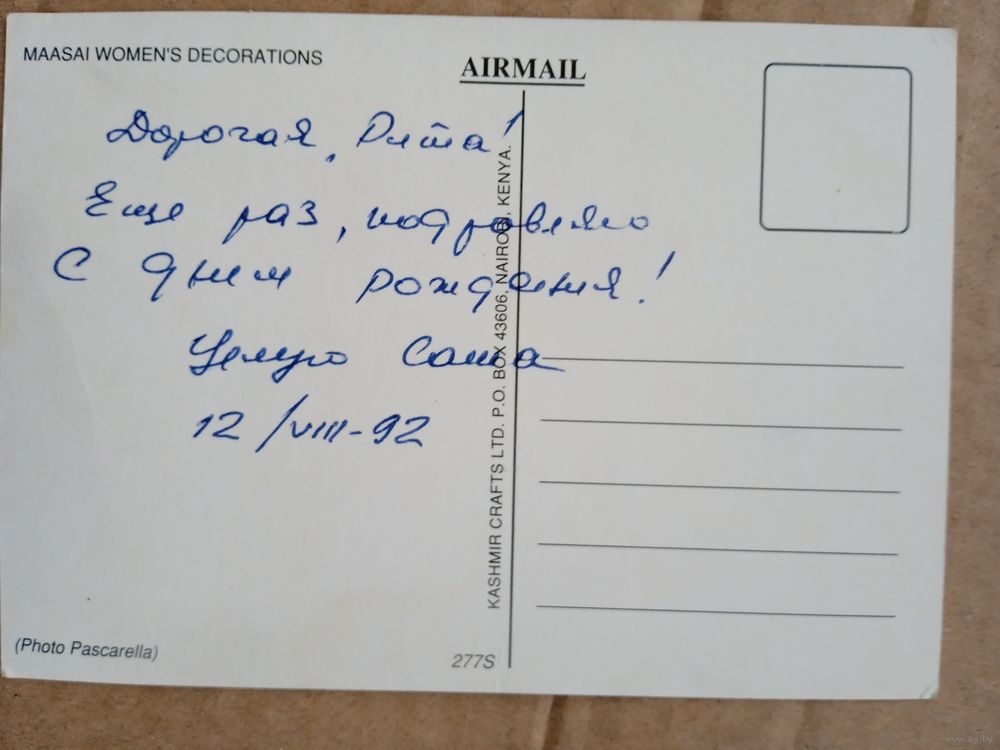 MAASAI WOMEN'S DECORATIONS
AIRMAIL
Дорогая, Рита!
Еще раз, поздравляю
С днем рождения!
Целую Саша
12/VIII-92
KASHMIR CRAFTS LTD. P.O. BOX 43606, NAIROBI, KENYA.
(Photo Pascarella)
277S
www.ay.by